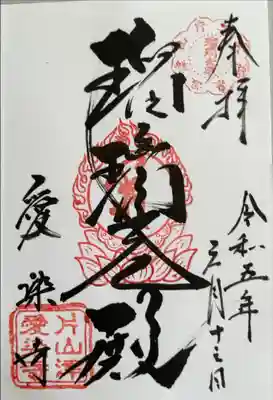 奉拝
令和五年
三月十三日
瑠璃殿
愛染寺
片山
愛染寺